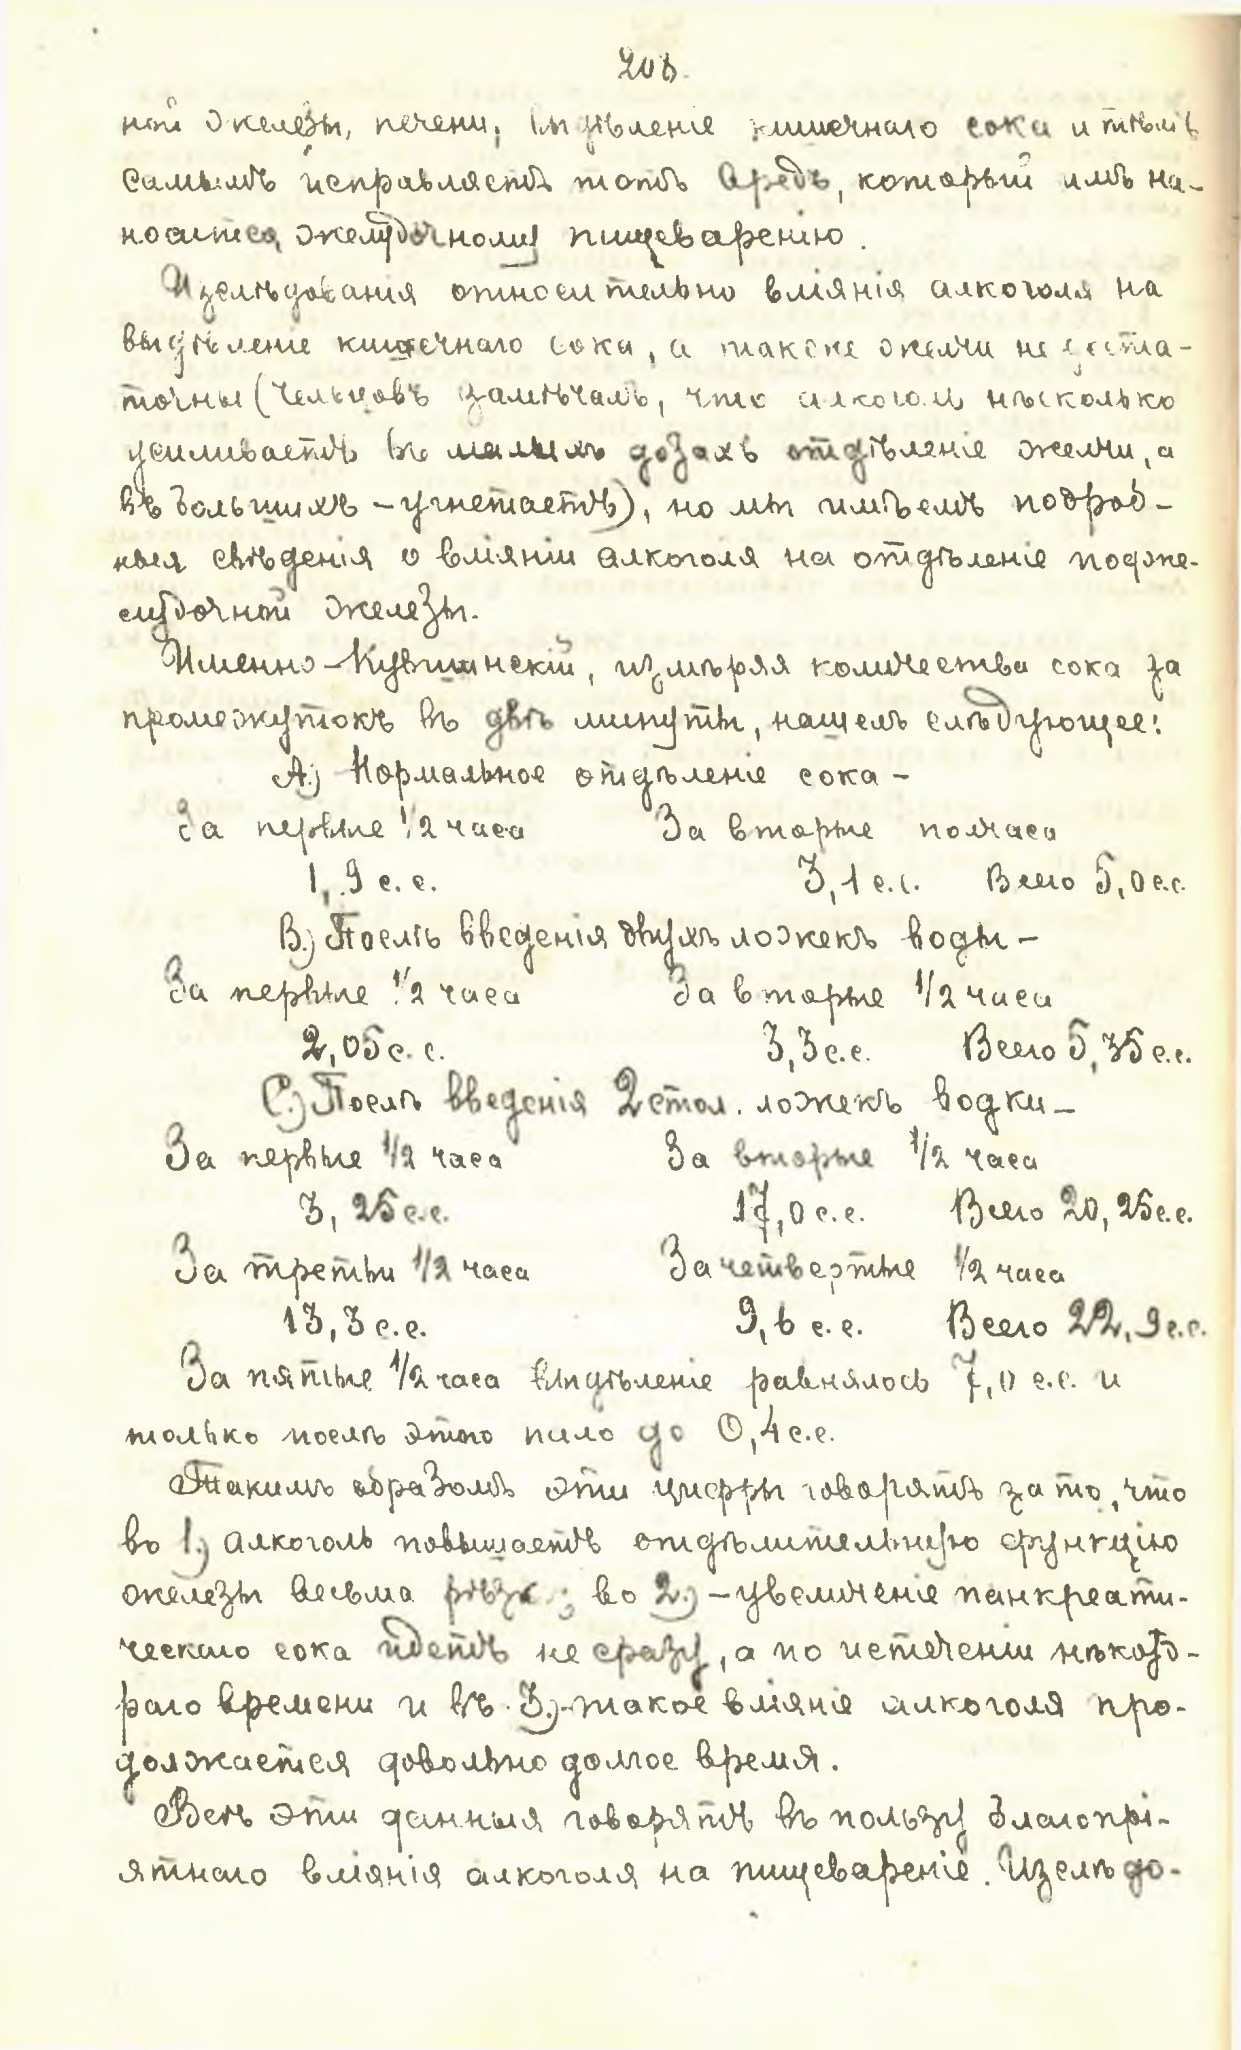 208.
ной железы, печени, выдѣленіе кишечнаго сока и тѣмъ
самымъ исправляетъ тотъ вредъ, который имъ на-
носится желудочному пищеваренію.
Изслѣдованія относительно вліянія алкоголя на
выдѣленіе кишечнаго сока, а также желчи не доста-
точны (Чельцовъ замѣчалъ, что алкоголь нѣсколько
усиливаетъ въ малыхъ дозахъ отдѣленіе желчи, а
въ большихъ – угнетаетъ), но мы имѣемъ подроб-
ныя свѣденія о вліяніи алкоголя на отдѣленіе подже-
лудочной железы.
Именно – Кувшинскій, измѣряя количества сока за
промежутокъ въ двѣ минуты, нашелъ слѣдующее:
А.) Нормальное отдѣленіе сока –
За первые 1/2 часа За вторые полчаса
1,9 с.с. 3,1 с.с. Всего 5,0 с.с.
В.) Послѣ введенія двухъ ложекъ воды –
За первые 1/2 часа За вторые 1/2 часа
2,05 с.с. 3,3 с.с. Всего 5,35 с.с.
С.) Послѣ введенія 2 стол. ложекъ водки –
За первые 1/2 часа За вторые 1/2 часа
3,25 с.с. 17,0 с.с. Всего 20,25 с.с.
За третьи 1/2 часа За четвертые 1/2 часа
13,3 с.с. 9,6 с.с. Всего 22,9 с.с.
За пятые 1/2 часа выдѣленіе равнялось 7,0 с.с. и
только послѣ этого пало до 0,4 с.с.
Такимъ образомъ эти цифры говорятъ за то, что
во 1.) алкоголь повышаетъ отдѣлительную функцію
железы весьма рѣзко; во 2.) – увеличеніе панкреати-
ческаго сока идетъ не сразу, а по истеченіи нѣкото-
раго времени и въ 3.) – такое вліяніе алкоголя про-
должается довольно долгое время.
Всѣ эти данныя говорятъ въ пользу благопрі-
ятнаго вліянія алкоголя на пищевареніе. Изслѣдо-